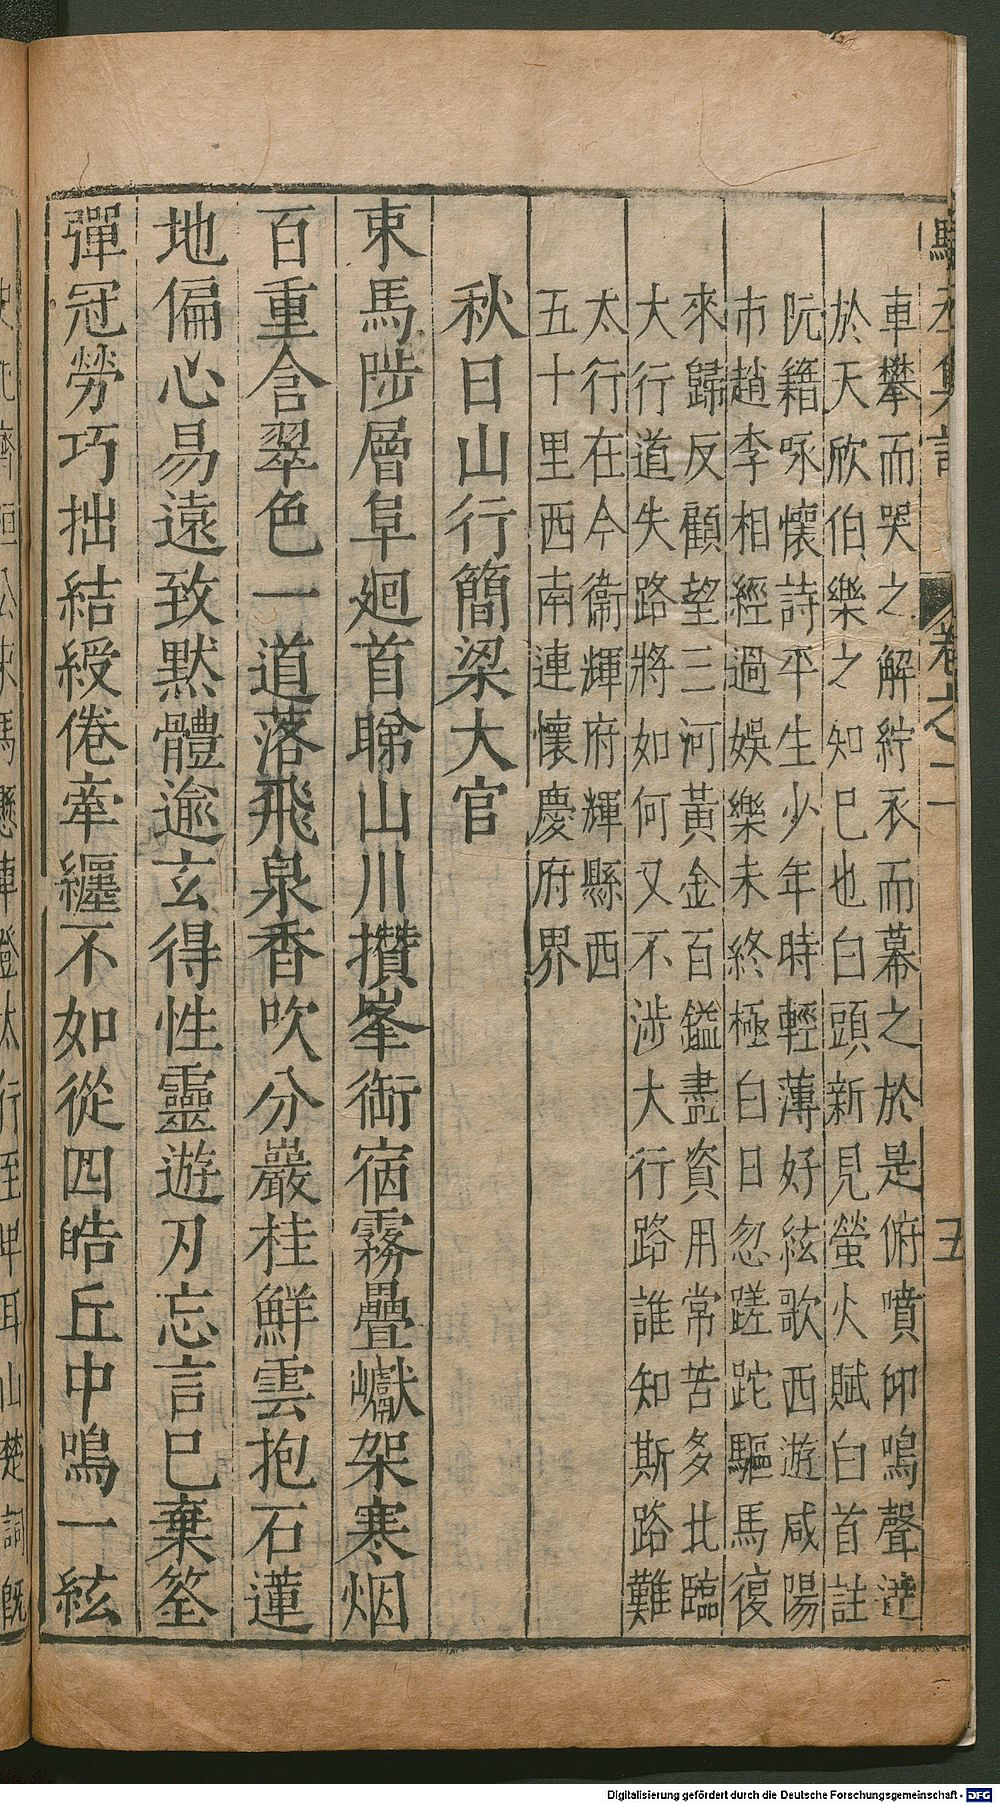 車攀而哭之解紵衣而幕之於是俯噴仰鳴聲達
於天欣伯樂之知己也白頭新見螢火賦白首註
阮籍咏懷詩平生少年時輕薄好絃歌西遊咸陽
市趙李相經過娛樂未終極白日忽蹉跎驅馬復
來歸反顧望三河黃金百鎰盡資用常苦多北臨
大行道失路將如何又不涉大行路誰知斯路難
太行在今衞輝府輝縣西
五十里西南連懷慶府界
秋日山行簡梁大官
束馬陟層阜廻首睇山川攢峯銜宿霧疊巘架寒烟
百重含翠色一道落飛泉香吹分巖桂鮮雲抱石蓮
地偏心易遠致默體逾玄得性靈遊刃忘言已棄筌
彈冠勞巧拙結綬倦牽纏不如從四皓丘中鳴一絃
卷之二
五
Digitalisierung gefördert durch die Deutsche Forschungsgemeinschaft - DFG